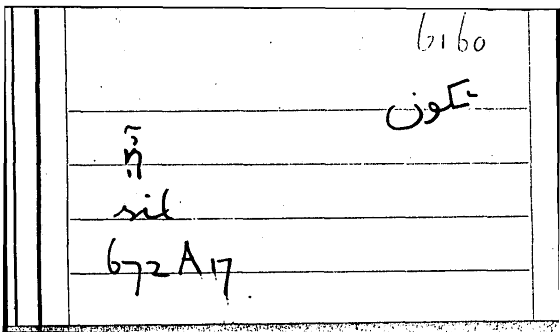 6160
تكون
ṇ̃
sil
672A17